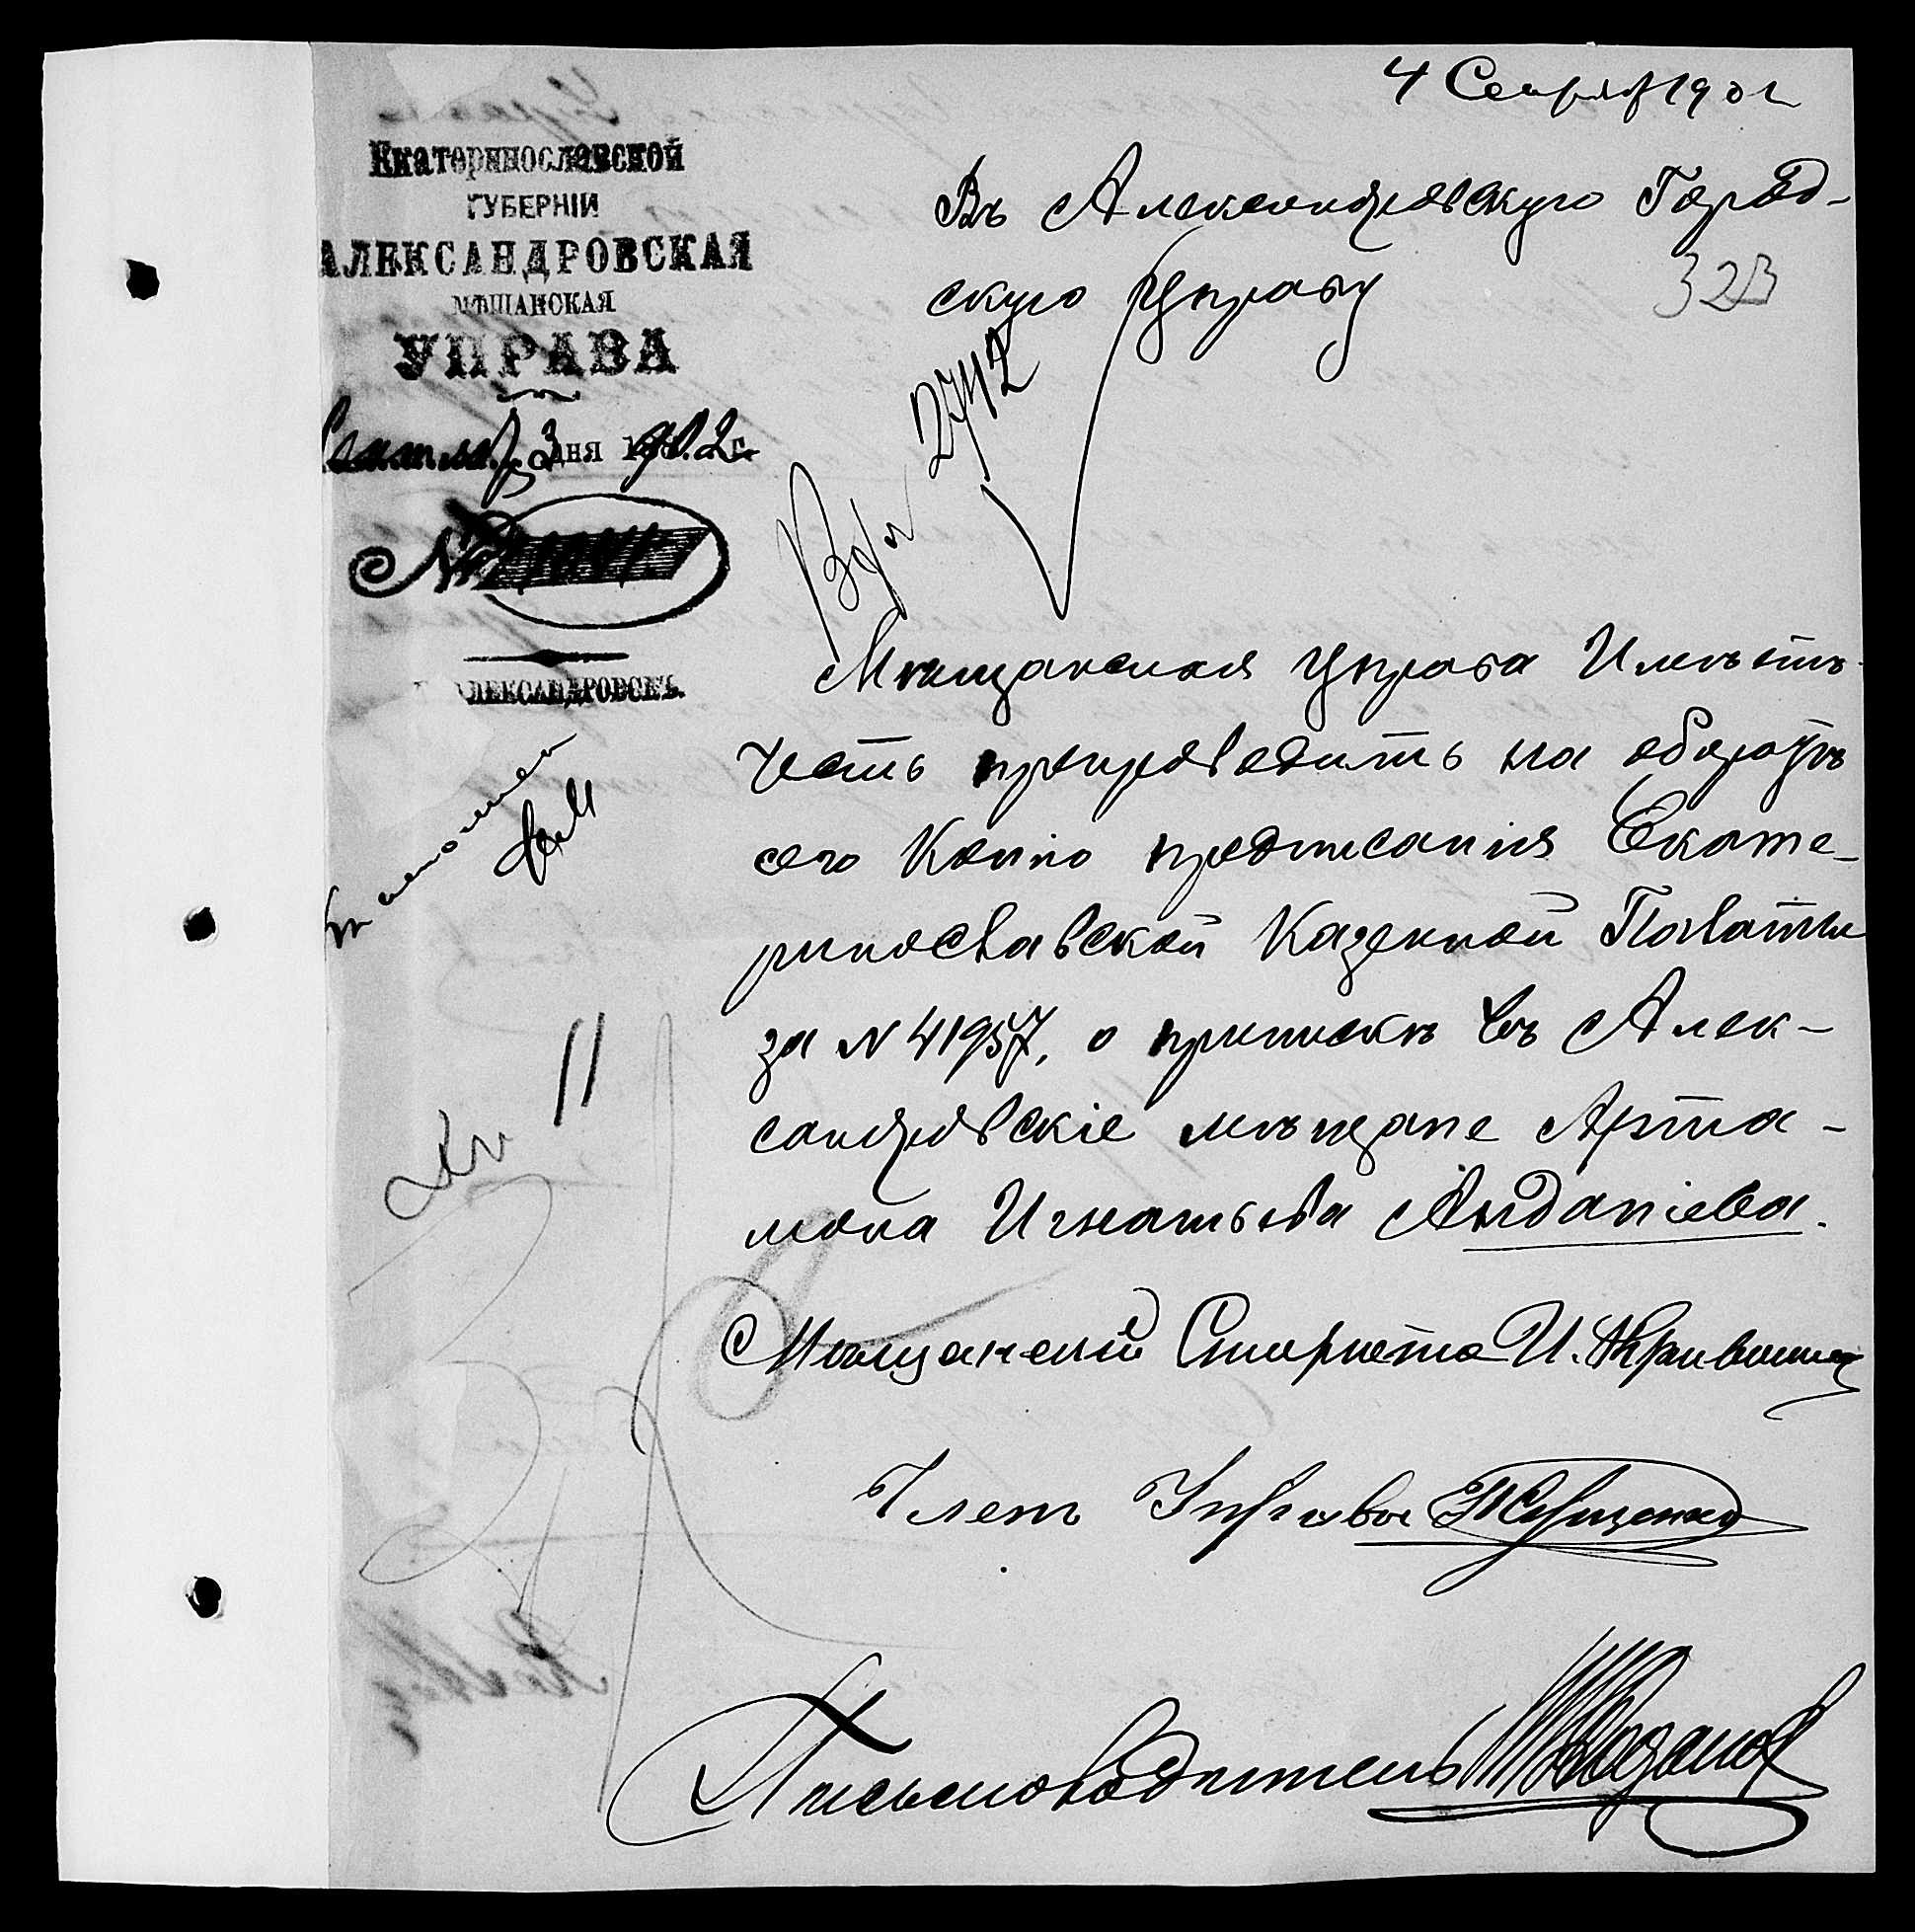 4 Сентяб 1902
Екатеринославской
ГУБЕРНІИ
АЛЕКСАНДРОВСКАЯ
МѢЩАНСКАЯ
УПРАВА
Сентяб. 3 дня 1902 г.
№
АЛЕКСАНДРОВСКЪ.
Въ Александровскую Город-
скую Управу
323
Вх 2742
Мѣщанская Управа Имѣетъ
честь препроводить на оборотѣ
сего Копію предписанія Екате-
ринославской Казенной Палаты
за № 41957, о припискѣ въ Алек-
сандровскіе мѣщане Арта-
мона Игнатьева
Мѣщанскій Староста И.
Членъ Управы
Письмоводитель